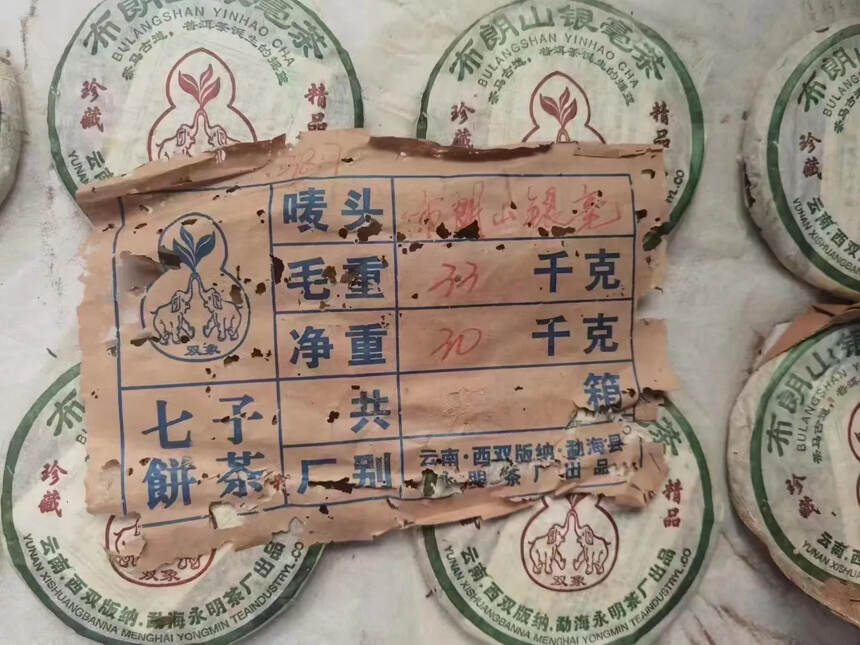 布朗山银毫茶
BULANGSHAN YINHAO CHA
茶马古道，普洱茶诞生的摇篮
珍藏
精品
云南
布朗山银毫茶
BULANGSHAN YINHAO CHA
茶马古道，普洱茶诞生的摇篮
珍藏
精品
唛头 布朗山银毫
毛重 33 千克
净重 30 千克
共 箱
厂别 云南·西双版纳·勐海县
永明茶厂出品
双象
七子
饼茶
布朗山银
BULANGSHAN
珍藏
云南.西双版纳
YUNAN XISHUANGBANNA MENGHAI
布朗
珍藏
双象
云南.西双版纳.勐海永明茶厂出品
YUNAN XISHUANGBANNA MENGHAI YONGMIN TEAINDUSTRYL.CO
茶
精品
双象
云南.西双版纳.勐海永明茶厂出品
YUNAN XISHUANGBANNA MENGHAI YONGMIN TEAINDUSTRYL.CO
布朗山银
BULANGSHAN YINHAO
珍藏
云南.西双版纳
YUNAN XISHUANGBANNA